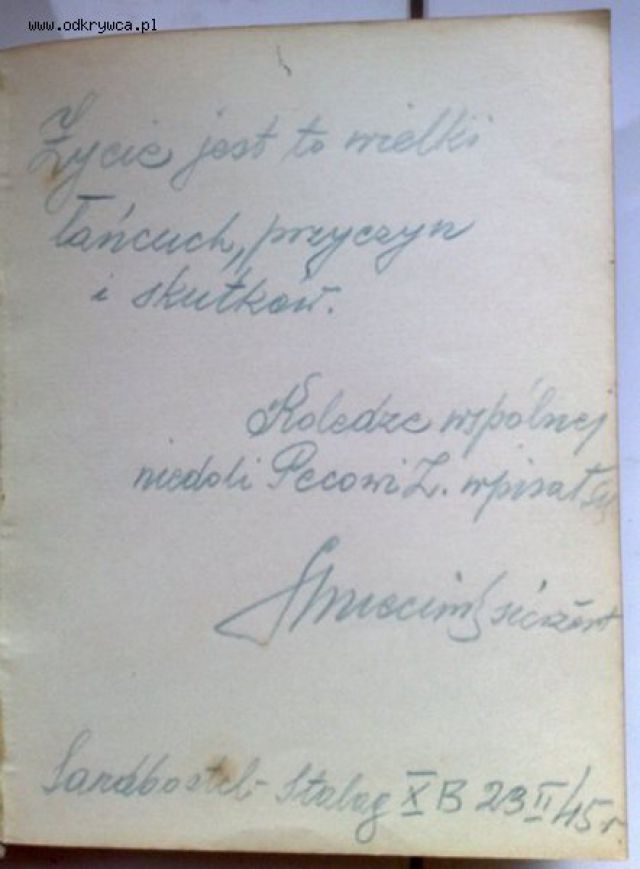 www.odkrywca.pl
Życie jest to wielki
łańcuch, przyczyn
i skutków.
Koledze wspólnej
niedoli Pecowi Z. wpisał się
Sandbostel - Stalag X B 23 II/45 r